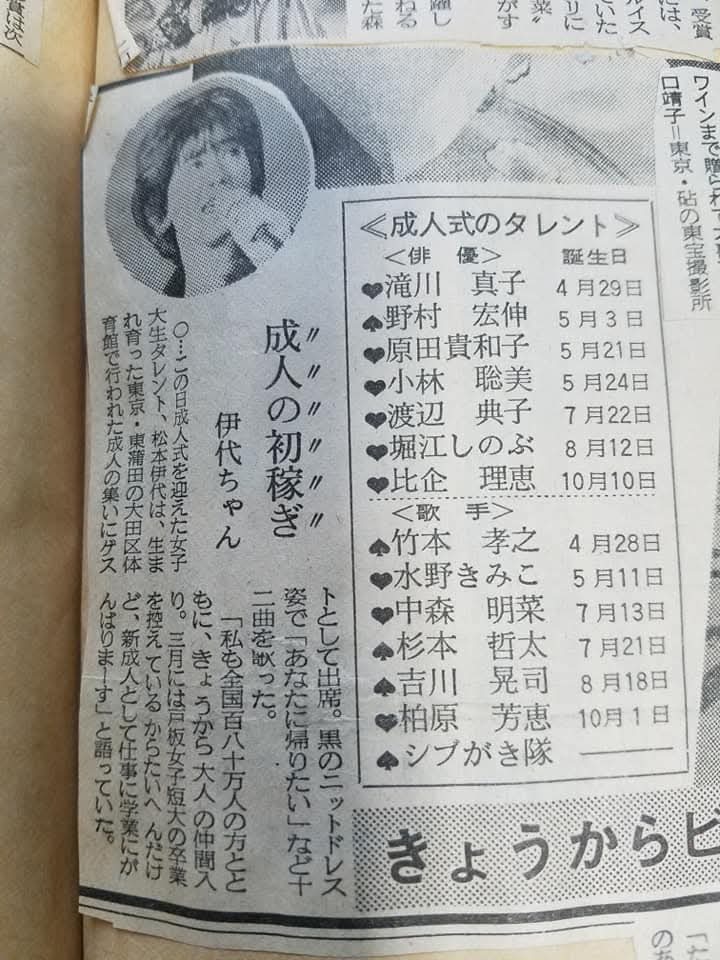 受賞
には、
ルイス
ていた
リに
菜〟
がす
躍し
ねる
た森
賞は次
ワインまで贈られて大
口靖子＝東京・砧の東宝撮影所
≪成人式のタレント≫
＜俳　優＞　誕生日
♥滝川　真子　4月29日
♠野村　宏伸　5月3日
♥原田貴和子　5月21日
♥小林　聡美　5月24日
♥渡辺　典子　7月22日
♥堀江しのぶ　8月12日
♥比企　理恵　10月10日
＜歌　手＞
♠竹本　孝之　4月28日
♥水野きみこ　5月11日
♥中森　明菜　7月13日
♠杉本　哲太　7月21日
♠吉川　晃司　8月18日
♥柏原　芳恵　10月1日
♠シブがき隊　―――
〃〃〃〃〃〃〃
成人の初稼ぎ
伊代ちゃん
〇…この日成人式を迎えた女子
大生タレント、松本伊代は、生ま
れ育った東京・東蒲田の大田区体
育館で行われた成人の集いにゲス
トとして出席。黒のニットドレス
姿で「あなたに帰りたい」など十
二曲を歌った。
「私も全国百八十万人の方とと
もに、きょうから大人の仲間入
り。三月には戸板女子短大の卒業
を控えている からたいへ んだけ
ど、新成人として仕事に学業にが
んばりまーす」と語っていた。
きょうからヒ
「た
のあ